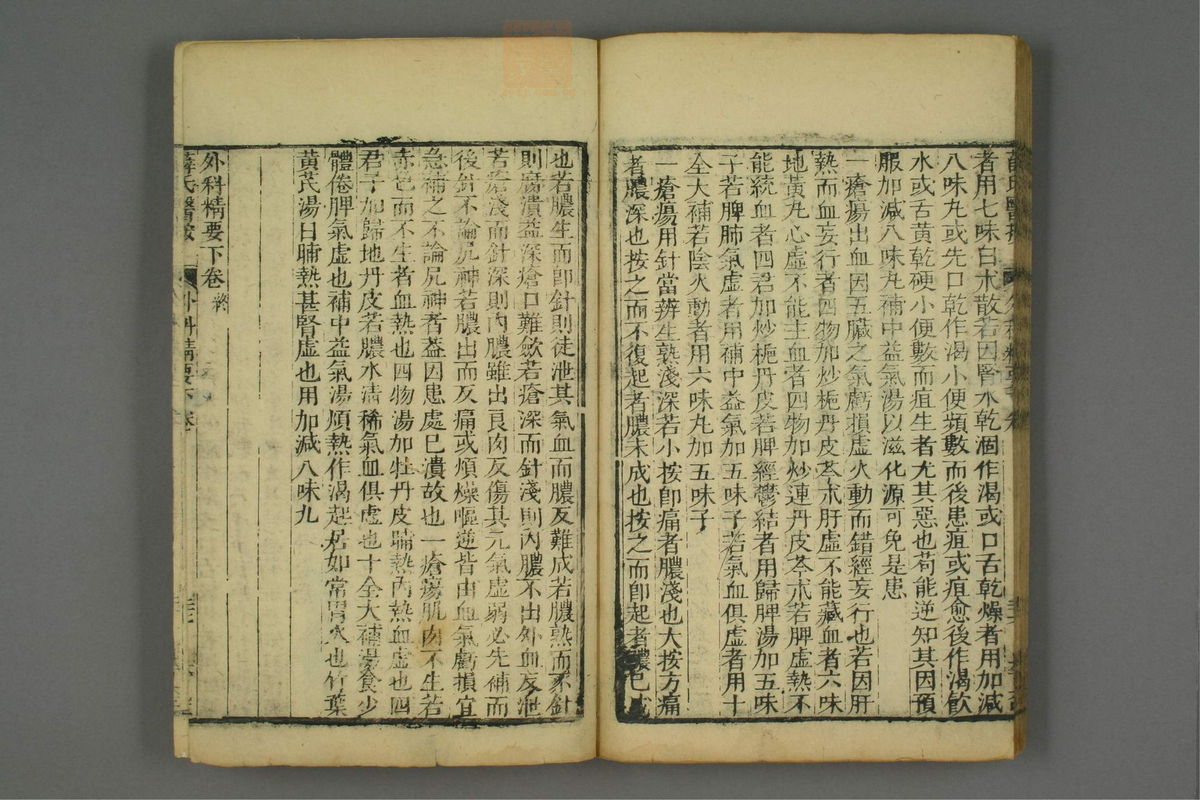 者用七味白朮散若因腎水乾涸作渴或口舌乾燥者用加減
八味丸或先口乾作渴小便頻數而後患疽或疽愈後作渴飲
水或舌黃乾硬小便數而疽生者尤其惡也苟能逆知其因預
服加減八味丸補中益氣湯以滋化源可免是患
一瘡瘍出血因五臟之氣虧損虛火動而錯經妄行也若因肝
熱而血妄行者四物加炒梔丹皮苓朮肝虛不能藏血者六味
地黃丸心虛不能主血者四物加炒連丹皮苓朮若脾虛熱不
能統血者四君加炒梔丹皮若脾經鬱結者用歸脾湯加五味
子若脾肺氣虛者用補中益氣加五味子若氣血俱虛者用十
全大補若陰火動者用六味丸加五味子
一瘡瘍用針當辨生熟淺深若小按卽痛者膿淺也大按方痛
者膿深也按之而不復起者膿未成也按之而卽起者膿已成
也若膿生而卽針則徒泄其氣血而膿反難成若膿熟而不針
則腐潰益深瘡口難歛若瘡深而針淺則內膿不出外血反泄
若瘡淺而針深則內膿雖出良肉反傷其元氣虛弱必先補而
後針不論尻神若膿出而反痛或煩燥嘔逆皆由血氣虧損宜
急補之不論尻神者蓋因患處已潰故也一瘡瘍肌肉不生若
赤色而不生者血熱也四物湯加牡丹皮晡熱內熱血虛也四
君子加歸地丹皮若膿水清稀氣血俱虛也十全大補湯食少
體倦脾氣虛也補中益氣湯煩熱作渴起居如常胃火也竹葉
黃芪湯日晡熱甚腎虛也用加減八味丸
外科精要下卷終
薛氏醫按 外科精要下卷